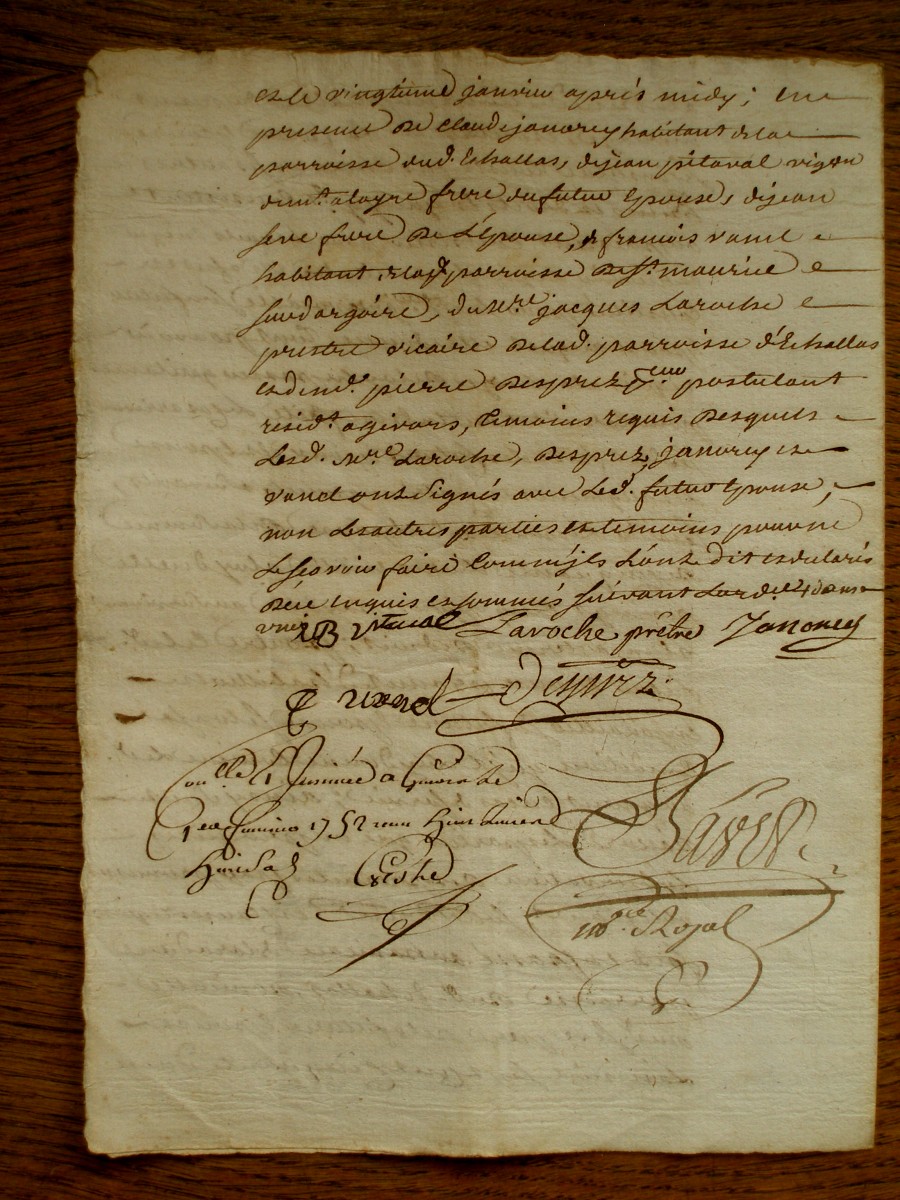 et le vingtieme janvier après midy; en
presence de Claude janorey habitant de la
parroisse dud. Echallas, de jean pitaval vigon
dem.t a logre frere du futur Epouse, de jean
seve frere de L'Epouse, & francois vanel
habitant de la parroisse de St. maurice
sur dargoire, de Mre. jacques Laroche
prestre vicaire de lad. parroisse d'Echallas
et de me. pierre Desprez postulant
resid.t a givors, temoins requis desquels
Lesd. Mre. Laroche, Desprez, janorey et
vanel ont Signés avec Led. futur Epouse,
non Les autres parties et temoins pour ne
Le sçavoir faire Comme ils L'ont dit et declarés
de ce Enquis et sommés suivant L'ord.ce
Laroche prêtre Janorey
vanel Desprez
Con.lle & a Givors le
1752
Royal